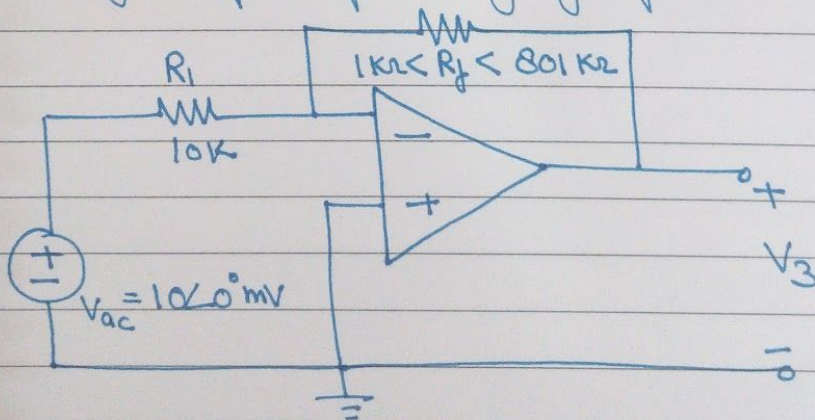 R1
10K
1KΩ< Rf < 801KΩ
−
+
+
−
Vac = 10∠0° mV
+
V3
−